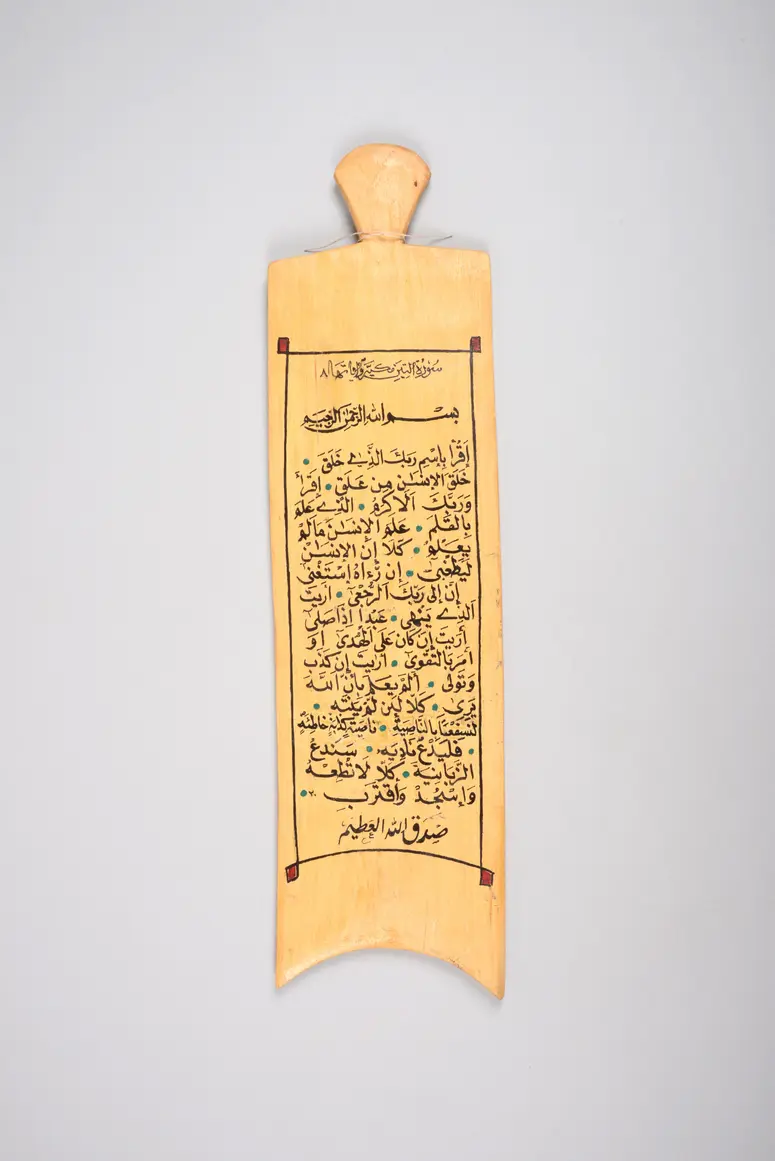 سورة التين مكية وآياتها ٨
بسم الله الرحمن الرحيم
إقرأ بإسم ربك الذے خلق •
خلق الإنسٰن من علق • إقرأ
وربك الاكرم • الذے علم
بالقلم • علم الإنسٰن مالم
يعلم • كلا إن الإنسٰن
ليطغىٰ • إن رءاه إستغنى
إن إلى ربك الرجعىٰ • أريت
الذے ينهى • عبدا إذا صلى
أريت إن كان على الهدى او
امر بالتقوى • أريت إن كذب
وتولى • ألم يعلم بأن الله
يرى • كلا لين لم ينته •
لنسفعا بالناصية • ناصية كذبة خاطئة
• فليدع ناديه • سندع
الزبانية • كلا لا تطعه
وإسجد وأقترب ٢٠ •
صدق الله العظيم